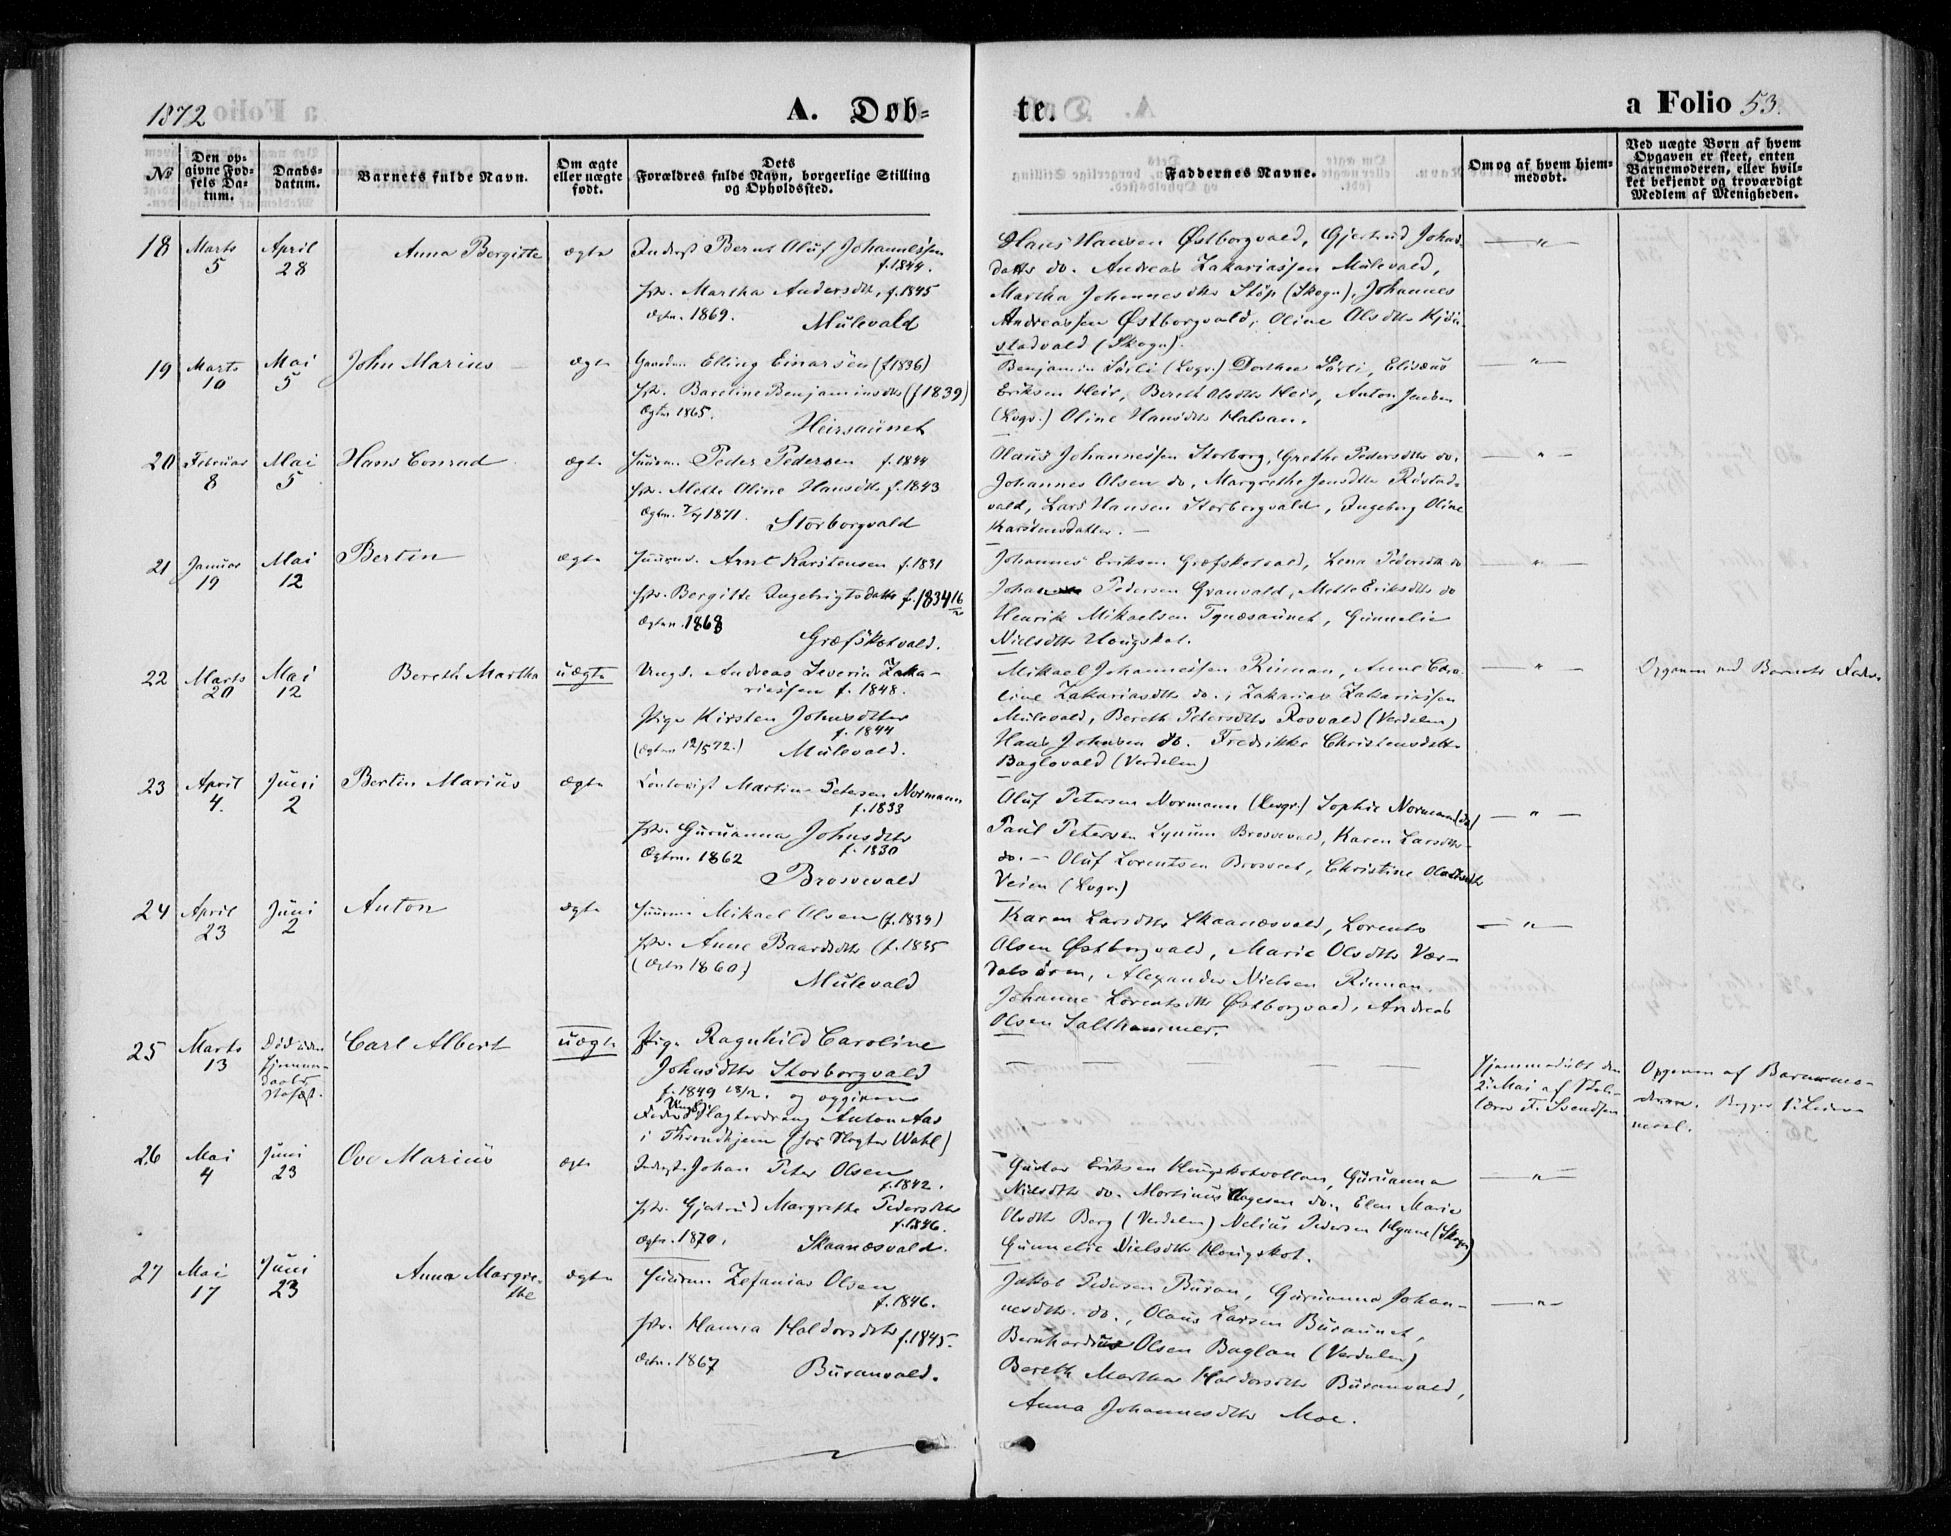 1872
A. Døb-
te.
a Folio 53.
No
Den op-
givne Fød-
sels Da-
tum.
Daabs-
datum.
Barnets fulde Navn.
Om ægte
eller uægte
født.
Dets
Forældres fulde Navn, borgerlige Stilling
og Opholdssted.
Faddernes Navne.
Om og af hvem hjem-
medøbt.
Ved uægte Børn af hvem
Opgaven er skeet, enten
Barnemoderen, eller hvil-
ket bekjendt og troværdigt
Medlem af Menigheden.
18 Marts 5 April 28 Anna Bergitte ægte
Inderst Bernt Oluf Johannessen
f. 1844.
Martha Andersdtr, f. 1845
Ægtev. 1869. Mulevald
Hans Hansen Østborgvald, Gjertrud Johns-
datter do. Andreas Zakariassen Mulevald,
Martha Johannesdtr Støp (Skogn), Johannes
Andreassen Østborgvald, Oline Olsdtr
stadvald (Skogn).
19 Marts 10 Mai 5 John Marius ægte
Gaardm. Elling Einarsen (f 1836)
Bareline Benjaminsdtr (f 1839)
Ægtev 1865.
Heirsaunet
Benjamin Sørli (Levgr.) Dorthea Sørli, Elisæus
Eriksen Heir, Bereth Olsdtr Heir, Anton
(Levgr.) Oline Hansdtr Halsan.
20 Februar 8 Mai 5 Hans Conrad ægte
Huusm. Peder Pedersen f. 1844
Mette Oline Hansdtr f. 1843
Ægtev. 1871. Storborgvald
Olaus Johannessen Storborg, Grethe Pedersdtr do.
Johannes Olsen do, Margrethe Jensdtr Røstad-
vald, Lars Hansen Storborgvald, Ingeborg Oline
Karstensdatter. —
21 Januar 19 Mai 12 Bertin ægte
Huusmd. Arnt Karstensen f. 1831
Bergitte Ingebrigtsdatter f. 1834
Ægtev. 1868
Græfsketvald.
Johannes Eriksen Græfsketvald, Lena Pedersdtr do
Johan Pedersen Granvald, Mette Eriksdtr do
Henrik Mikaelsen Tynæsaunet, Gunnelie
Nielsdtr Hougskot.
22 Marts 20 Mai 12 Bereth Martha uægte
Ungk. Andreas Severin Zaka-
riassen f. 1848.
Pige Kirsten Johnsdtter
f. 1844
(Ægtev 12/5 72.) Mulevald.
Mikael Johannessen Rinnan, Anne Caro-
line Zakariasdtr do., Zakarias Zakariassen
Mulevald, Bereth Petersdtr Rosvald (Verdalen)
Hans Johnsen do. Fredrikke Christensdatter
Baglovald (Verdalen)
Opgaven ved Barnets Fader
23 April 4. Juni 2 Bertin Marius ægte
Martin Petersen Normann
f. 1833
Guruanna Johnsdtr
f. 1830
Ægtev. 1862
Brosvevald
Oluf Petersen Normann (Levgr.) Sophie Normann (do)
Paul Petersen Lynum Brosvevald, Karen Larsdtr
do. — Oluf Lorentsen Brosveet, Christine
Veien (Levgr.)
24 April 23 Juni 2 Anton ægte
Huusm. Mikael Olsen (f. 1839)
Anne Baardsdtr (f. 1835
(Ægtev 1860)
Mulevald
Karen Larsdtr Skaanæsvald, Lorents
Olsen Østborgvald, Marie Olsdtr Vær-
dalsøren, Alexander Nielsen Rinnan.
Johanne Lorentsdtr Østborgvald, Andreas
Olsen Salthammer.
25 Marts 13 Død uden
Hjemme-
daabs
Stadfæst. Carl Albert uægte
Pige Ragnhild Caroline
Johnsdtr Storborgvald
f. 1849 og opgiven
Fader Ungk. Slagterdreng Anton Aas
i Throndhjem (hos Slagter Wahl)
Hjemmedøbt den
2 Mai af Skole-
lærer T. Svendsen
Opgaven af Barnemo-
deren. Begges 1ste Leier-
maal.
26 Mai 4 Juni 23 Ove Marius ægte
Inderst Johan Peter Olsen
f. 1842.
Gjertrud Margrethe Pedersdtr
f. 1846.
Ægtev. 1870. Skaanæsvald.
Gustav Eriksen Hougskotvollan, Guruanna
Nielsdtr do. Mortinus Aagesen do., Elen Marie
Olsdtr Berg (Verdalen) Nelius Pedersen Hynne (Skogn)
Gunnelie Nielsdtr Hougskot.
27 Mai 17 Juni 23 Anna Margre-
the ægte
Huusm. Zefanias Olsen
f. 1846.
Hanna Haldorsdtr f. 1845.
Ægtev. 1867 Buranvald.
Jakob Pedersen Buran, Guruanna Johan-
nesdtr. do., Olaus Larsen Buraunet,
Bernhardus Olsen Baglan (Verdalen)
Bereth Martha Haldorsdtr Buranvald,
Anna Johannesdtr Moe.